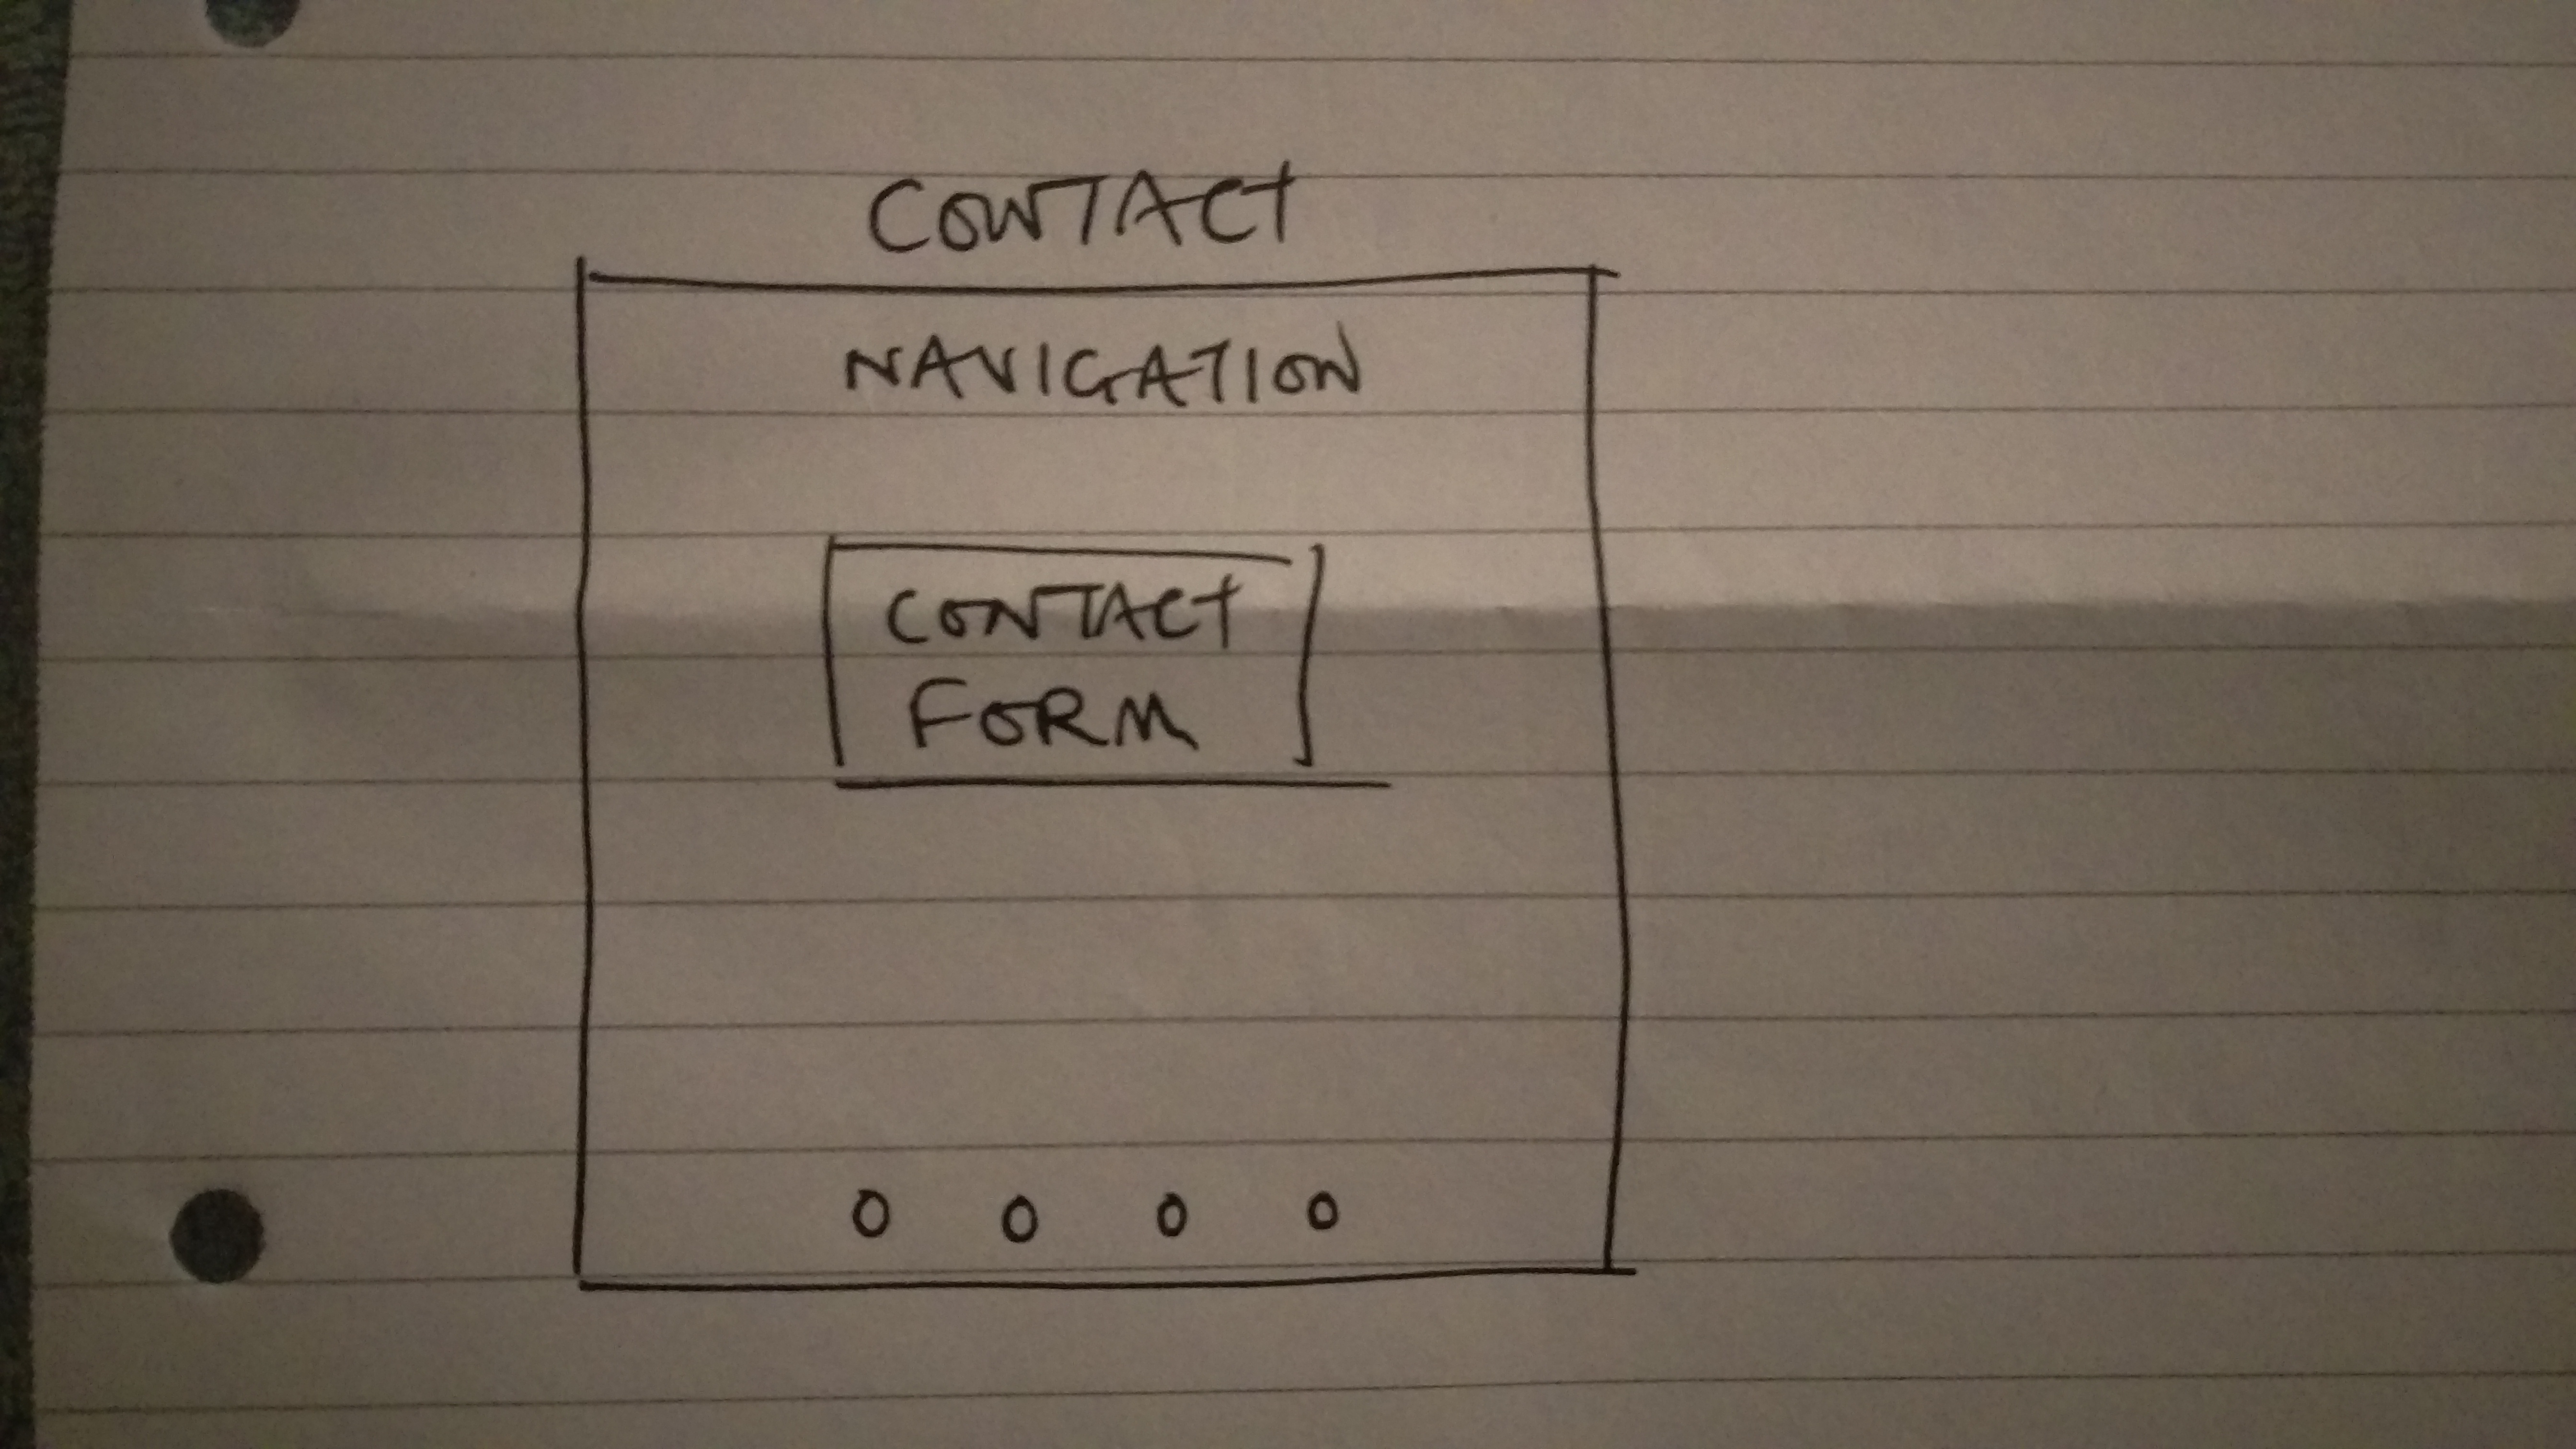 CONTACT
NAVIGATION
CONTACT
FORM